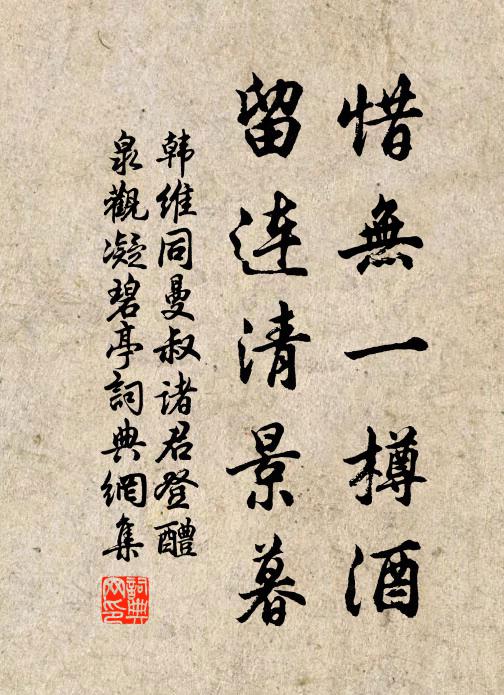 惜無一樽酒
留連清景暮
韓維同曼叔諸君登醴
泉觀凝碧亭詞典網集
詞典
网印